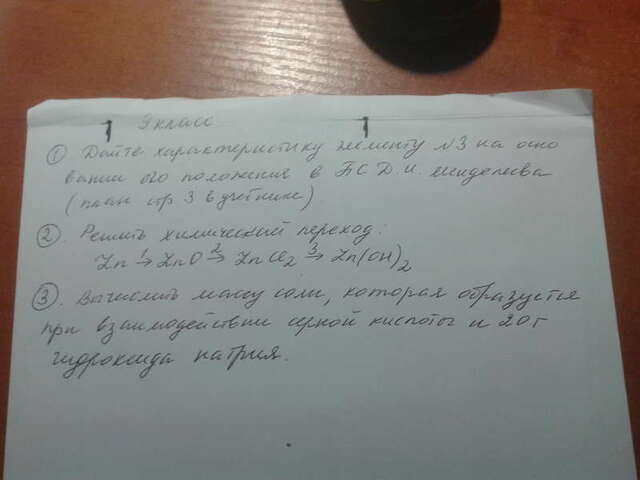 9 класс
① Дайте характеристику элементу №3 на осно
вании его положения в ПС Д.И. Менделеева
(план стр 3 в учебнике)
② . Решить химический переход:
Zn 1→ ZnO 2→ ZnCl₂ 3→ Zn(OH)₂
③ . Вычислить массу соли, которая образуется
при взаимодействии серной кислоты и 20 г
гидроксида натрия.